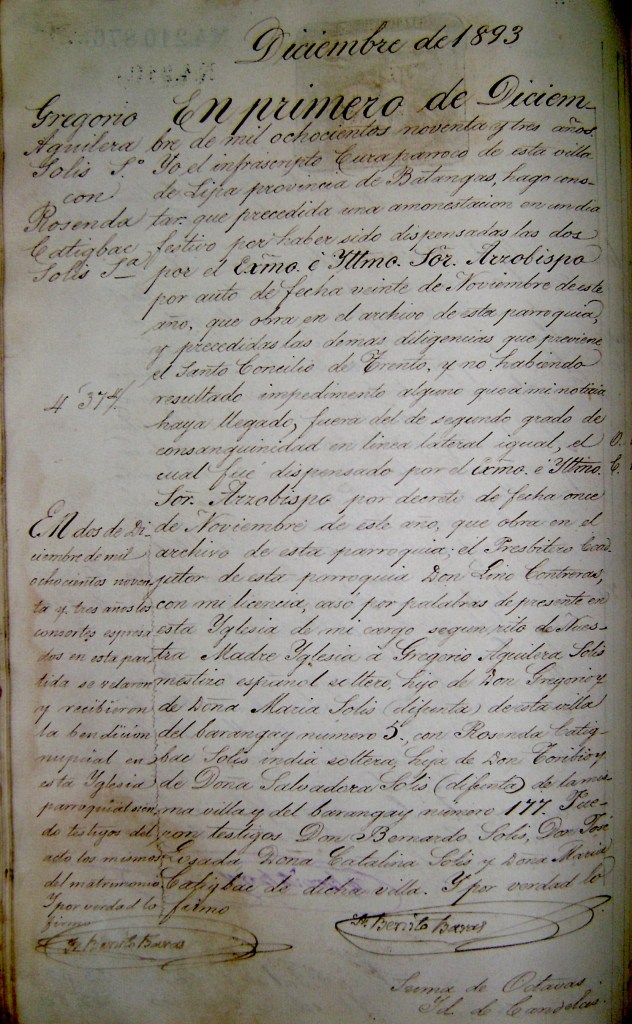 Diciembre de 1893
Gregorio
Aguilera
Solis S.º
con
Rosenda
Catigbac
Solis S.ª
4 " 37 4/.
En primero de Diciem-
bre de mil ochocientos noventa y tres años.
Yo el infrascripto Cura parroco de esta villa
de Lipa provincia de Batangas, hago cons-
tar: que precedida una amonestacion en un dia
festivo por haber sido dispensadas las dos
por el Exmo. é Yltmo. Sor. Arzobispo
por auto de fecha veinte de Noviembre de este
año, que obra en el archivo de esta parroquia,
y precedidas las demas diligencias que previene
el Santo Concilio de Trento, y no habiendo
resultado impedimento alguno que á mi noticia
haya llegado, fuera del de segundo grado de
consanguinidad en linea lateral igual, el
cual fué dispensado por el Exmo. é Yltmo.
Sor. Arzobispo por decreto de fecha once
de Noviembre de este año, que obra en el
archivo de esta parroquia; el Presbitero Coad-
jutor de esta parroquia Don Lino Contreras,
con mi licencia, casó por palabras de presente en
esta Yglesia de mi cargo segun rito de Nues-
tra Madre Yglesia á Gregorio Aguilera Solis
mestizo español soltero, hijo de Don Gregorio y
de Doña Maria Solis (difunta) de esta villa
del barangay numero 5., con Rosenda Catig-
bac Solis india soltera, hija de Don Toribio y
de Doña Salvadora Solis (difunta) de la mis-
ma villa y del barangay número 177. Fue-
ron testigos Don Bernardo Solis, Don José
Losada Doña Catalina Solis y Doña Maria
Catigbac de dicha villa. Y por verdad lo
firmo
Fr Benito Baras
En dos de Di-
ciembre de mil
ochocientos noven-
ta y tres años los
consortes espresa-
dos en esta par-
tida se velaron
y recibieron
la bendicion
nupcial en
esta Yglesia
parroquial sien-
do testigos del
acto los mismos
del matrimonio.
Y por verdad lo
firmo
Fr Benito Baras
Suma de Octavas
Id. de Candelas